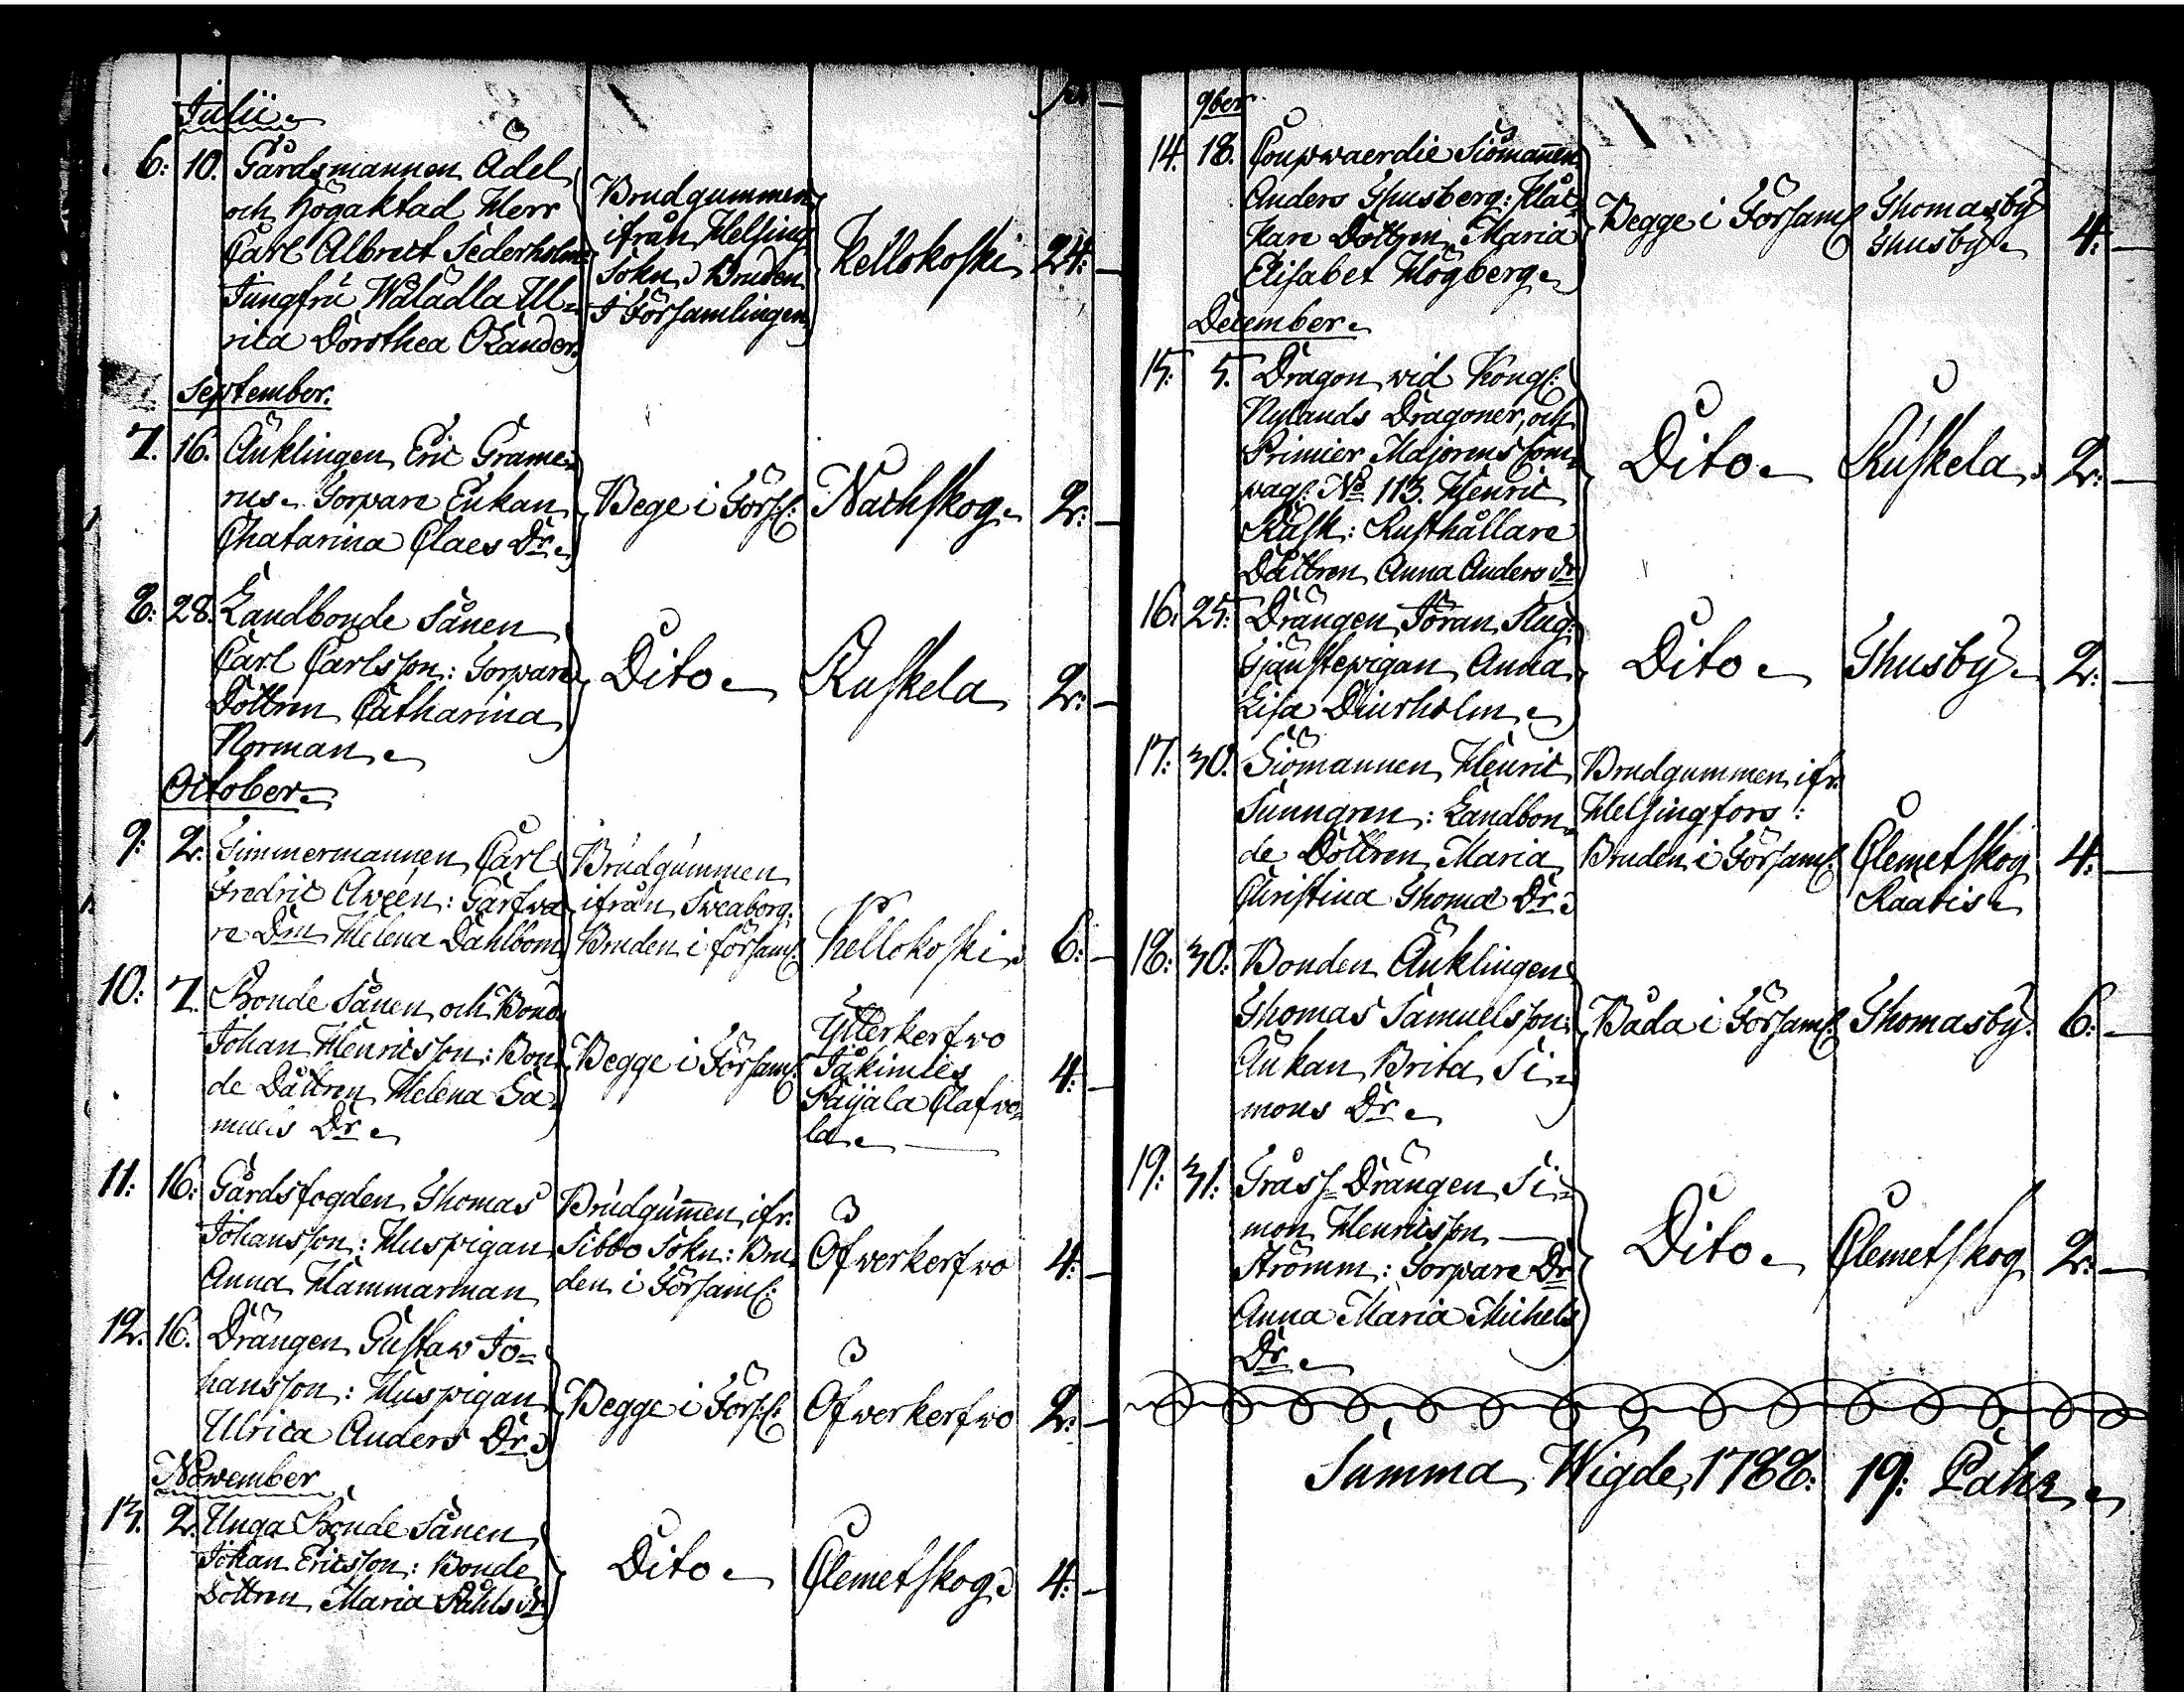 Julii
6: 10. Gårdsmannen Ädel
och Högaktad Herr
Carl Albrect Sederholm
Jungfru Wälädla Ul=
rica Dorothea
Brudgummen
ifrån Helsing
Sokn Bruden
i Församlingen
Kellokoski 24:
September.
7. 16. Änklingen Eric Grame=
rus Torpare Enkan
Chatarina Claes Dr
Bege i Förs: Nackskog 2:
8: 28. Landbonde Sånen
Carl Carlsson: Torpare
Dottren Catharina
Norman
Dito Ruskela 2:
October
9: 2. Timmermannen Carl
Fredric Aweén: Garfwa
re Dm Helena Dahlbom
Brudgummen
ifrån Sweaborg:
Bruden i församl:
Kellokoski 6:
10: 7. Bonde Sånen och Bond
Johan Henricsson: Bon=
de Dättren Helena Sa=
muels Dr
Begge i Församl:
Ytterkerfwo
Jåkimies
Päijälä Olafwo=
la
4:
11: 16: Gårdsfogden Thomas
Johansson: Huspigan
Anna Hammarman
Brudgumen ifr:
Sibbo Sokn: Bru
den i Församl:
Öfwerkerfwo 4:
12. 16. Drängen Gustaw Jo=
hansson: Huspigan
Ulrica Anders Dr
Begge i Förs: Öfwerkerfwo 2:
November
13. 2. Unga Bonde Sånen
Johan Ericsson: Bonde
Dottren Maria Påhls dr
Dito Clemetskog 4:
9ber
14. 18. Coupwaerdie Siömannen
Anders Thusberg: Klåc
kare Dottren Maria
Elisabet Högberg
Begge i Församl Thomasby
Thusby
4:
December
15: 5. Dragon wid Kongl:
Nylands Dragoner, och
Primier Majorens Com=
pagl: No 113. Henric
Rusk: Rusthållare
Dättren Anna Anders dr
Dito Ruskela 2:
16: 25: Drängen Jöran Slug:
Tjänstepigan Anna
Lisa Diurholm
Dito Thusby 2:
17: 30. Siömannen Henric
Sunngren: Landbon=
de Dottren Maria
Christina Thoma Dr
Brudgummen ifr:
Helsingfors:
Bruden i Församl:
Clemetskog
Raatis
4:
18: 30: Bonden Änklingen
Thomas Samuelsson:
Änkan Brita Si=
mons Dr
Båda i Församl: Thomasby 6:
19: 31: Gråss= Drängen Si=
mon Henricsson
Strömm: Torpare Dr
Anna Maria Michels
Dr
Dito Clemetskog 2:
Summa Wigde 1788: 19: Pahr